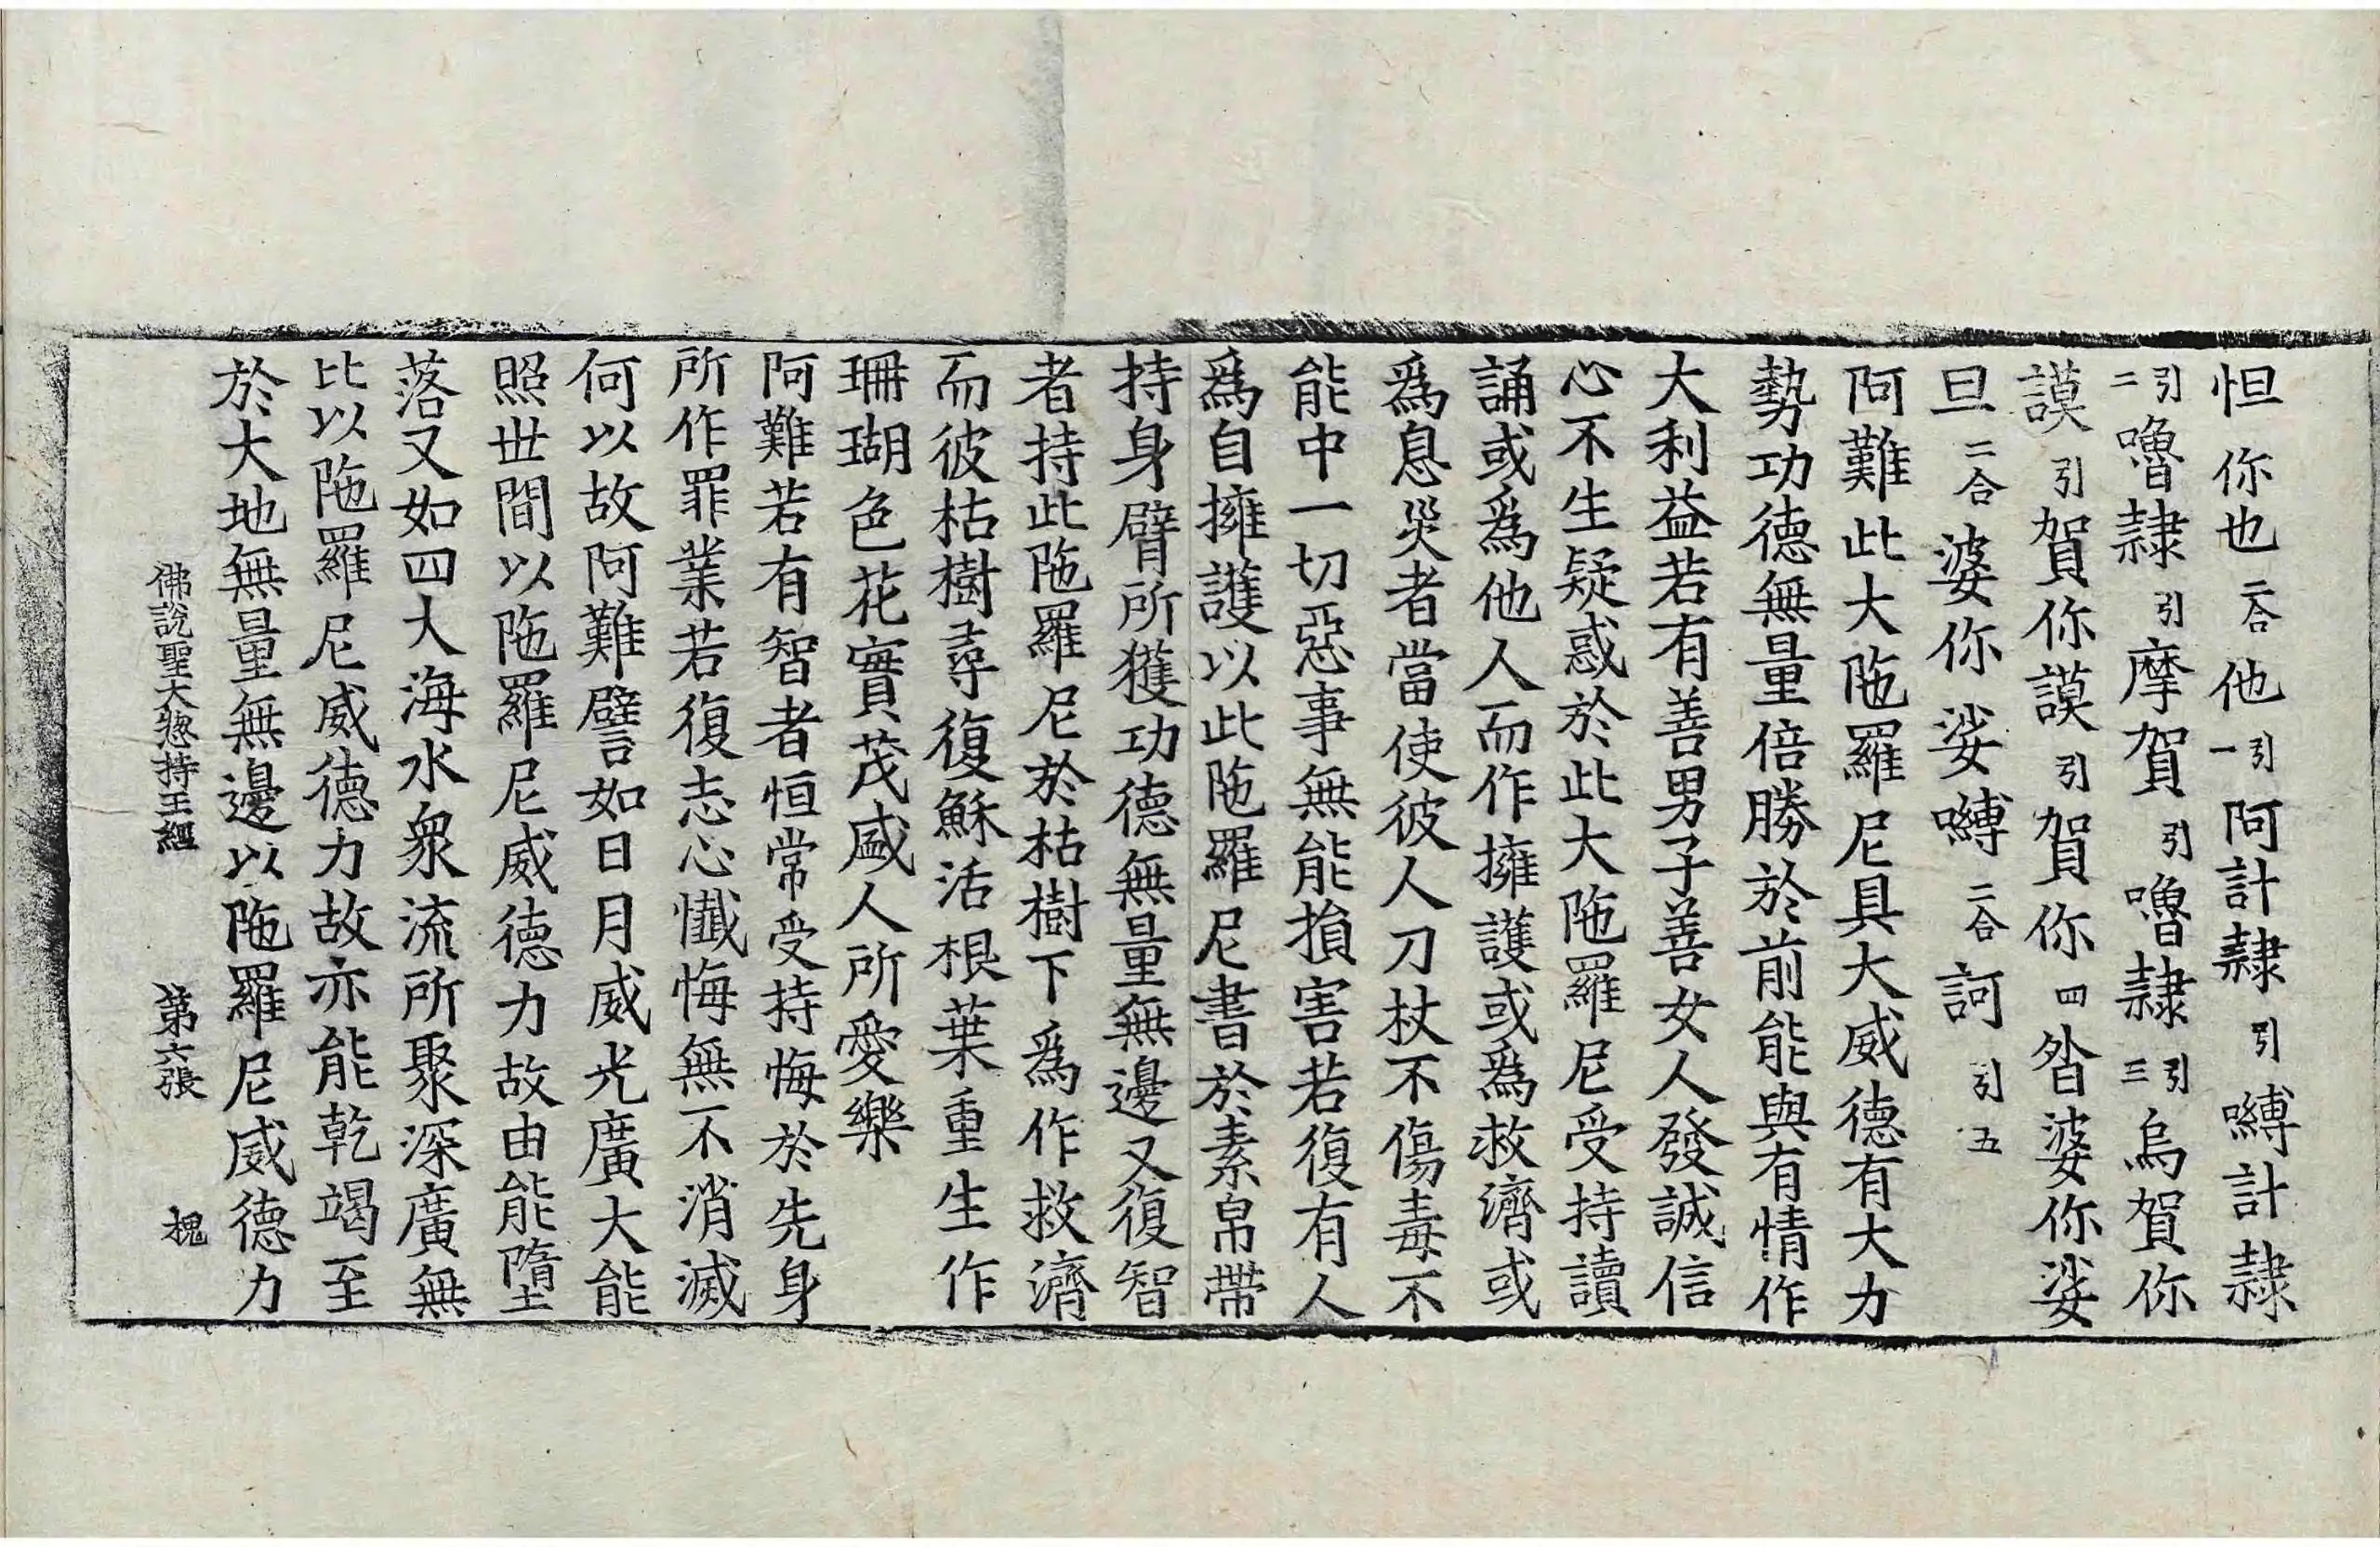 怛你也二合他引一阿計隷引嚩計隷
引二嚕隷引摩賀引嚕隷引三烏賀你
謨引賀你謨引賀你四昝婆你娑
旦二合婆你娑嚩二合訶引五
阿難此大陁羅尼具大威德有大力
勢功德無量倍勝於前能與有情作
大利益若有善男子善女人發誠信
心不生疑惑於此大陁羅尼受持讀
誦或爲他人而作擁護或爲救濟或
爲息災者當使彼人刀杖不傷毒不
能中一切惡事無能損害若復有人
爲自擁護以此陁羅尼書於素帛帶
持身臂所獲功德無量無邊又復智
者持此陁羅尼於枯樹下爲作救濟
而彼枯樹尋復穌活根葉重生作
珊瑚色花實茂盛人所愛樂
阿難若有智者恒常受持悔於先身
所作罪業若復志心懺悔無不消滅
何以故阿難譬如日月威光廣大能
照世間以陁羅尼威德力故由能墮
落又如四大海水衆流所聚深廣無
比以陁羅尼威德力故亦能乾竭至
於大地無量無邊以陁羅尼威德力
佛說聖大惣持王經　第六張　槐